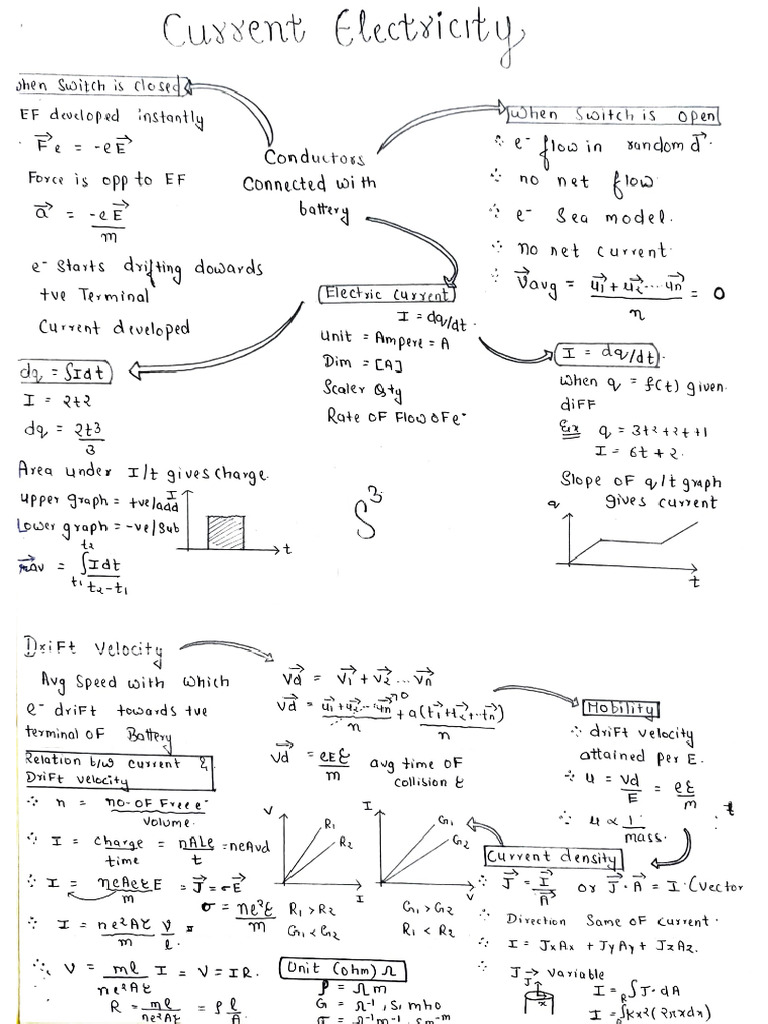 Current Electricity
when Switch is closed
EF developed instantly
F⃗e = -eE⃗
Force is opp to EF
a⃗ = -eE⃗/m
e⁻ Starts drifting dowards
+ve Terminal
Current developed
Conductors
Connected with
battery
When Switch is Open
∴ e⁻ flow in random d⃗.
∴ no net flow
∴ e⁻ Sea model.
∴ no net current.
∴ V⃗avg = (u⃗1 + u⃗2 ... u⃗n)/n = 0
Electric current
I = dq/dt.
Unit = Ampere = A
Dim = [A]
Scaler Qty
Rate OF Flow OF e⁻
I = dq/dt.
When q = f(t) given.
diFF
Ex q = 3t²+2t+1
I = 6t + 2.
Slope OF q/t graph
gives current
q
t
dq = ∫Idt
I = 2t2
dq = 2t3/3
Area under I/t gives Charge.
upper graph = +ve/add
Lower graph = -ve/Sub
av = ∫t1 t2 Idt/t2-t1
I
t
S³
DriFt Velocity
Avg Speed with which
e⁻ driFt towards +ve
terminal OF Battery
V⃗d = V⃗1 + V⃗2 ... V⃗n
V⃗d = (u⃗1 + u⃗2 ... u⃗n)/n →0 + a(t⃗1+t⃗2+..t⃗n)/n
V⃗d = eEτ/m avg time OF
collision τ
Mobility
∴ driFt velocity
attained per E.
∴ u = Vd/E = eτ/m
∴ u ∝ 1/mass.
∴ t
Relation b/w current &
DriFt velocity
∴ n = no-OF Free e⁻/Volume.
∴ I = Charge/time = nALe/t = neAVd
∴ I = neAeτE/m = J⃗ = σE⃗
σ = ne²τ/m
∴ I = ne²Aτ/m V/l.
∴ V = ml/ne²Aτ I = V = IR.
R = ml/ne²Aτ = ρ l/A
V
R1
R2
I
R1 > R2
G1 < G2
I
G1
G2
V
G1 > G2
R1 < R2
Unit (ohm) Ω
ρ = Ωm
G = Ω⁻¹, S, mho
σ = Ω⁻¹m⁻¹, Sm⁻m
Current density
∴ J⃗ = I⃗/A⃗ or J⃗·A⃗ = I·(Vector
∴ Direction Same OF current.
∴ I = JxAx + JyAy + JzAz.
∴ J → Variable
J
x
I = ∫J·dA
I = ∫Kx²(2πxdx)